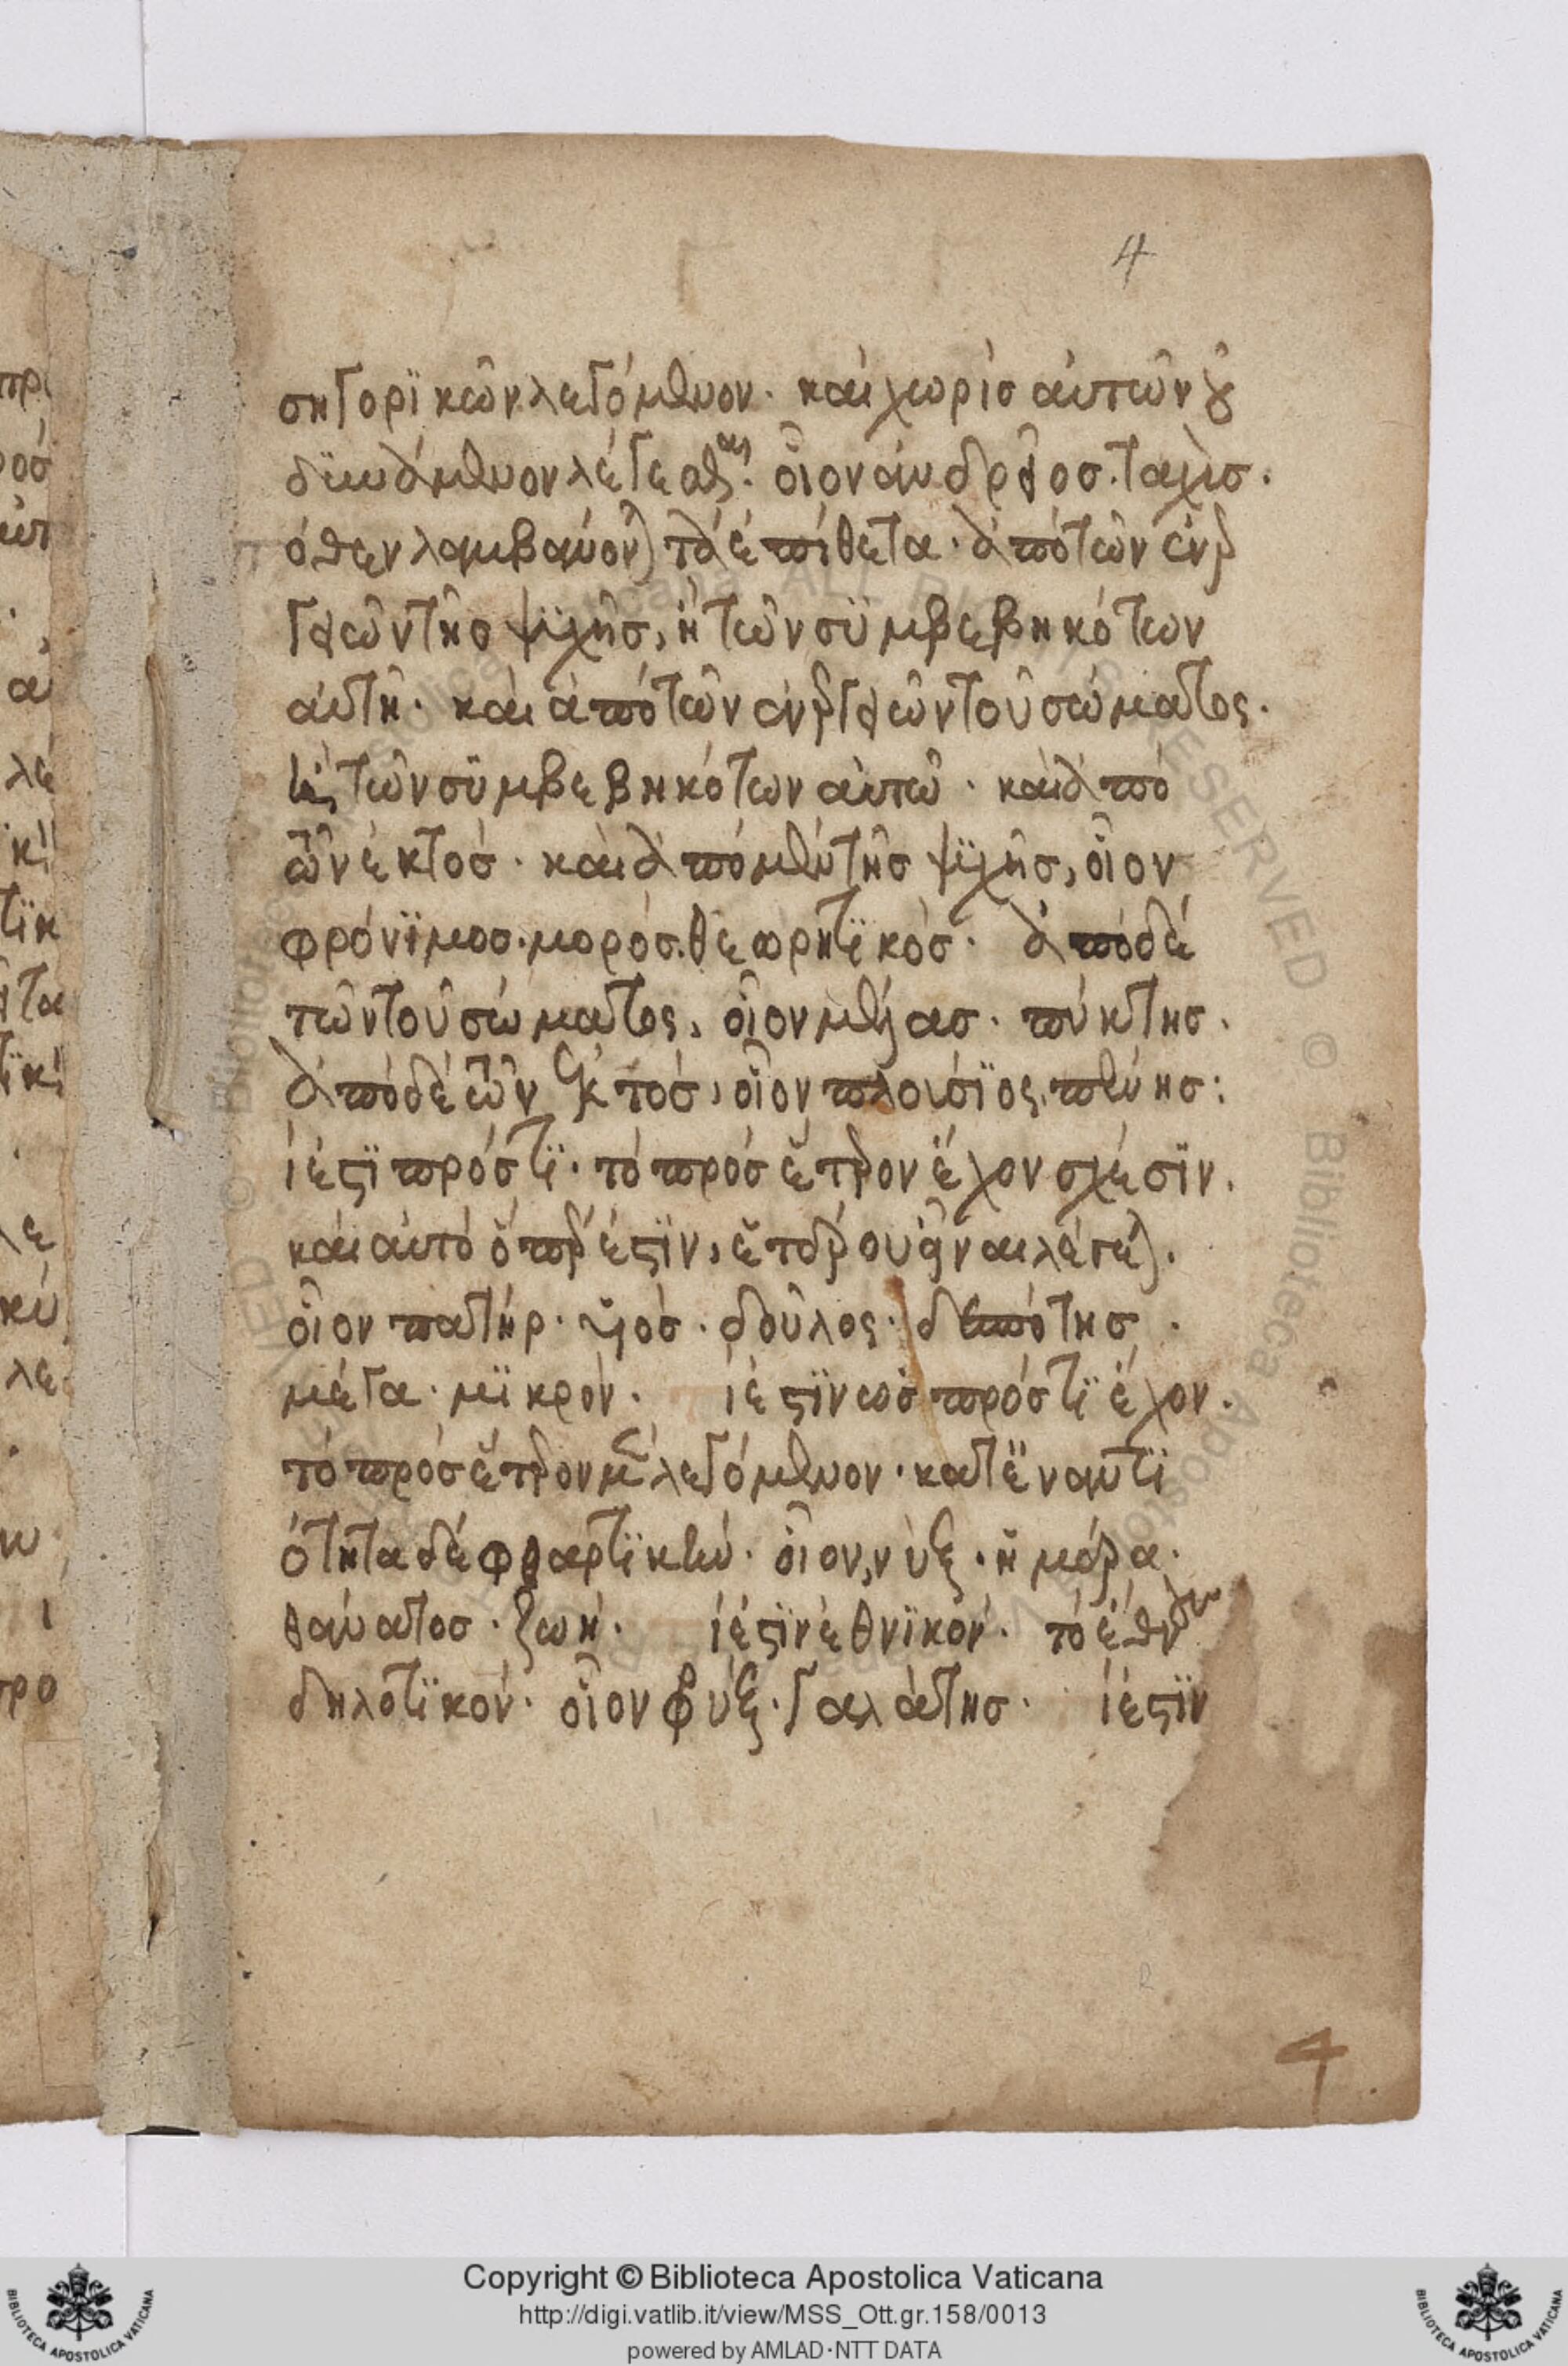 4
σηγορϊκῶν λεγόμενον· καὶ χωρὶσ αὐτῶν οὐ
δϋνάμενον λέγεσθαι· οἷον ἀνδρεῖοσ· ταχὺσ·
ὅθεν λαμβάνον) τὰ ἐπίθετα· ἀπὸ τῶν ἐνερ
γειῶν τῆσ ψϋχῆσ, ἢ τῶν σϋμβεβηκότων
αὐτῆ· καὶ ἀπὸ τῶν ἐνεργειῶν τοῦ σώματος·
καὶ τῶν σϋμβεβηκότων αὐτῶ· καὶ ἀπὸ
τῶν ἐκτόσ· καὶ ἀπὸ μὲν τῆσ ψϋχῆσ, οἷον
φρόνϊμοσ· μορόσ· θεωρητϊκόσ· ἀπὸ δὲ
τῶν τοῦ σώματος, οἷον μέγασ· πύκτησ·
ἀπὸ δὲ τῶν ἐκτόσ, οἷον πλούσϊος, πένησ:
ι ἐστϊ πρόστϊ· τὸ πρὸσ ἕτερον ἔχον σχέσϊν·
καὶ αὐτὸ ὅπερ ἐστϊν, ἑτέρου εἶναι λέγε)·
οἷον πατήρ· υἱόσ· δοῦλος· δεσπότησ·
μέγα· μϊκρόν· ι ἐστϊν ὡσ πρόστϊ ἔχον·
τὸ πρὸσ ἕτερον μὲν λεγόμενον· κατ' ἐναντϊ
ότητα δὲ φθαρτϊκήν· οἷον, νὺξ· ἡμέρα·
θάνατοσ· ζωή· ι ἐστϊν ἐθνϊκόν· τὸ ἐθνῶν
δηλοτϊκόν· οἷον φρύξ· γαλάτησ· ι ἐστϊν
4
Copyright © Biblioteca Apostolica Vaticana
http://digi.vatlib.it/view/MSS_Ott.gr.158/0013
powered by AMLAD·NTT DATA